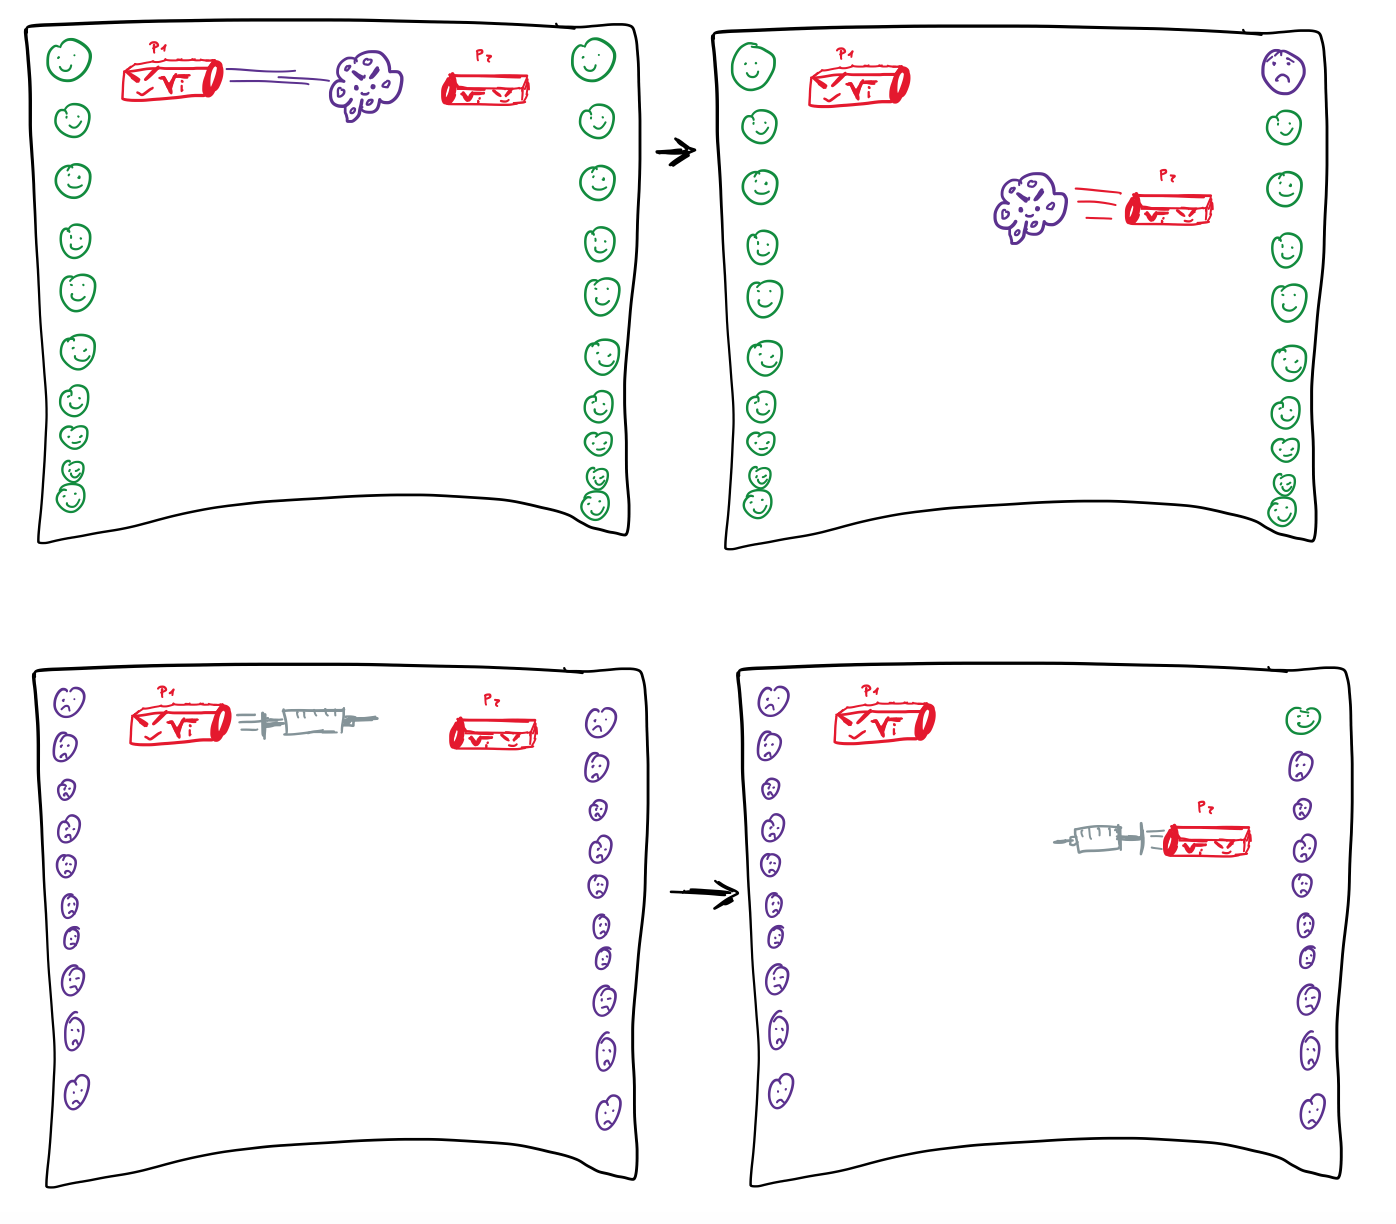 P1
P2
P1
P2
P1
P2
P1
P2